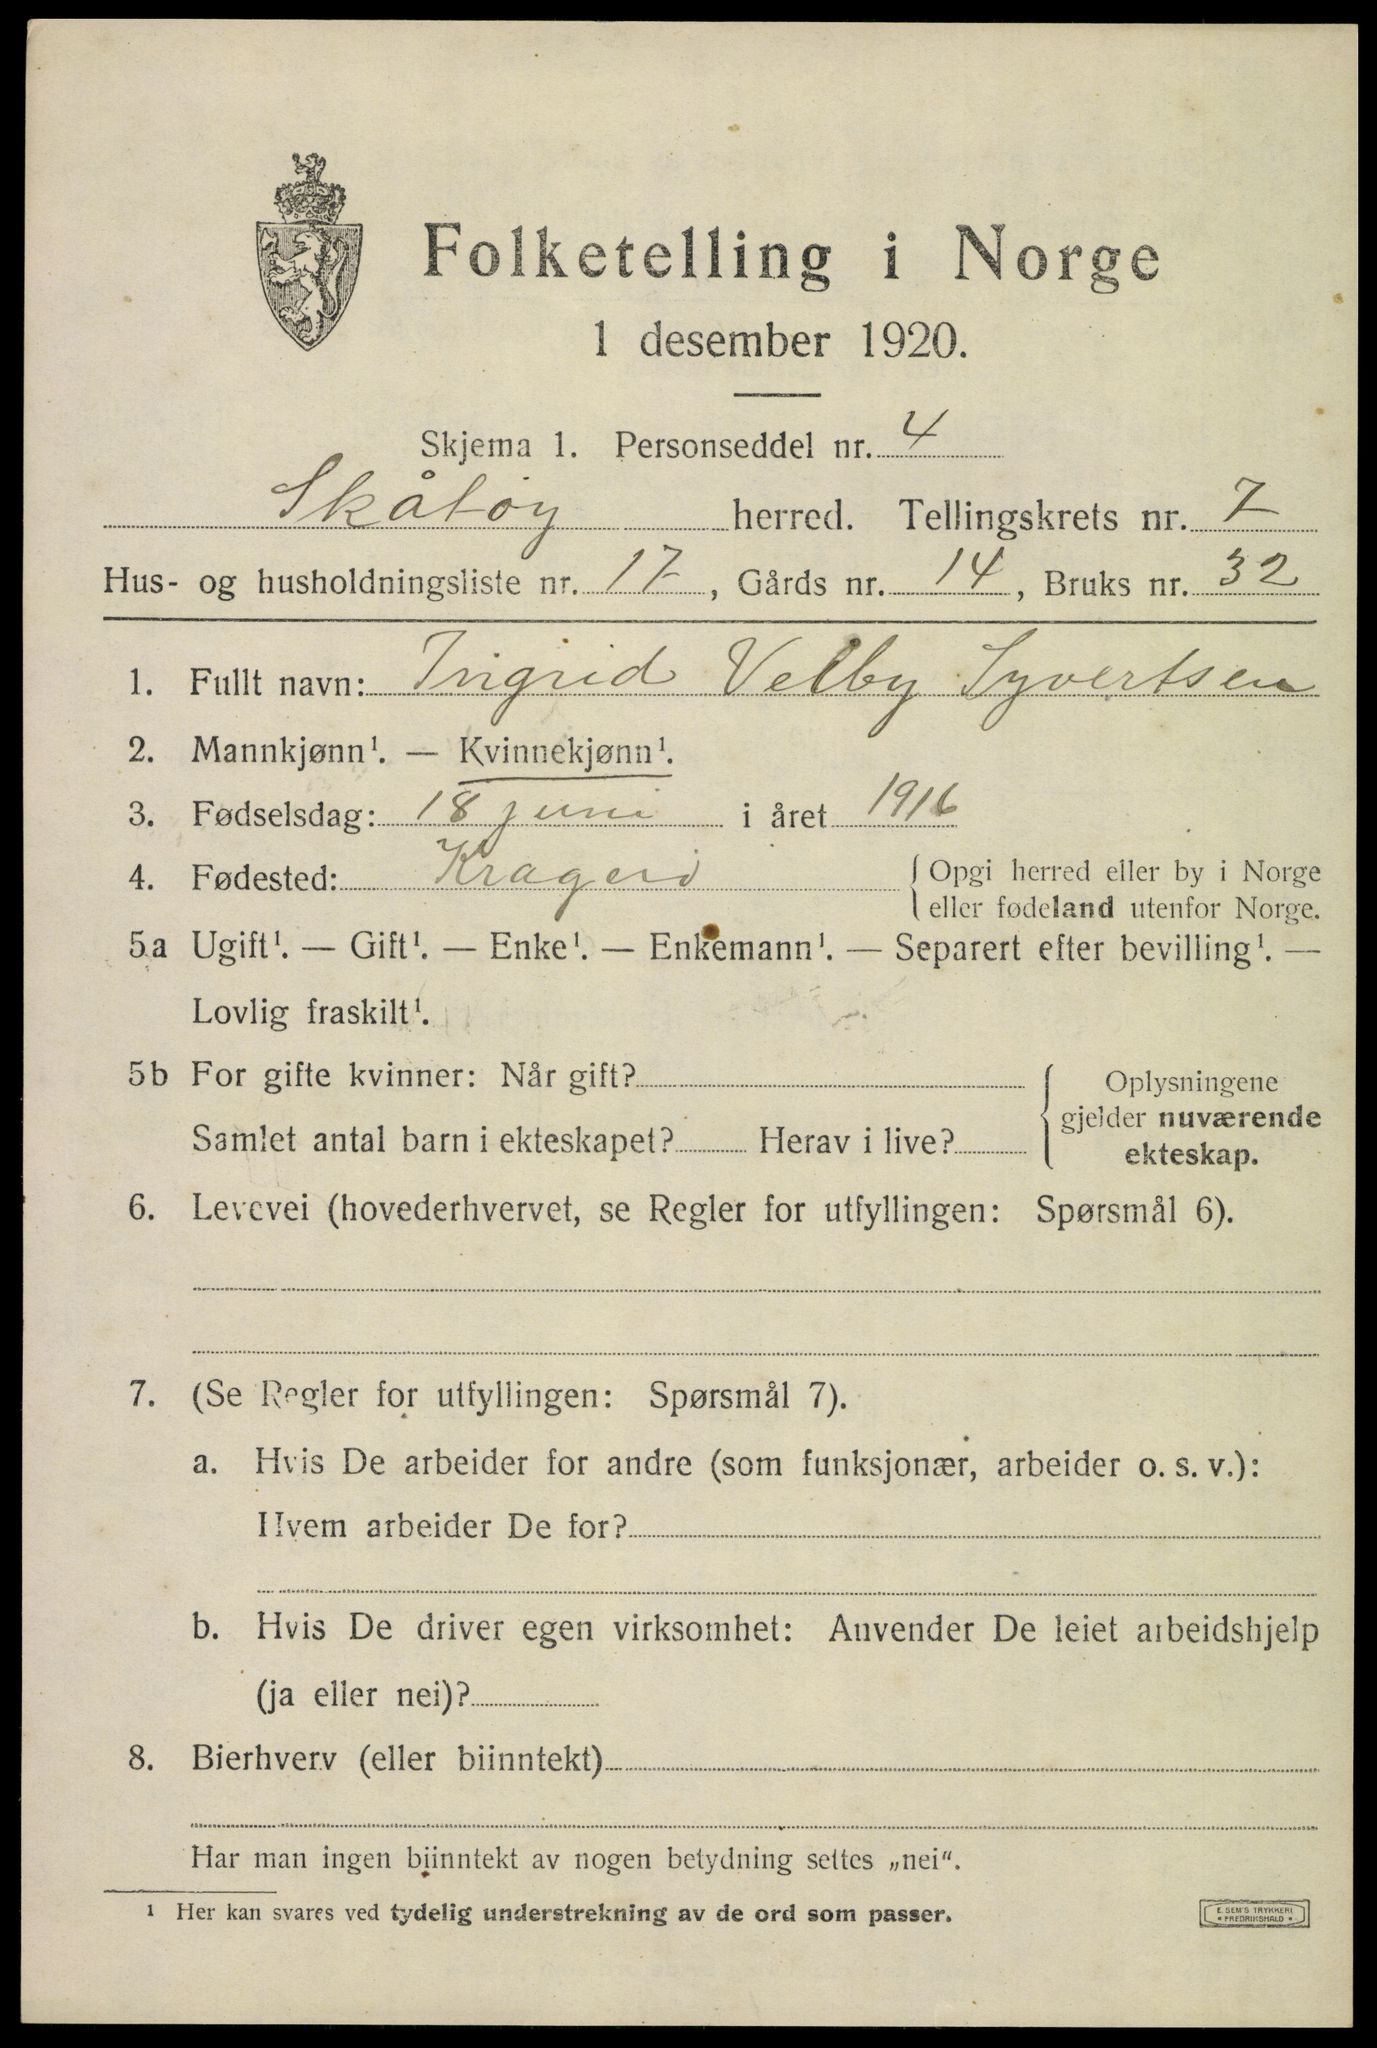 Folketelling i Norge
1 desember 1920.
Skjema 1. Personseddel nr. 4
Skåtøy herred. Tellingskrets nr. 7
Hus- og husholdningsliste nr. 17, Gårds nr. 14, Bruks nr. 32
1. Fullt navn: Ingrid Velby Syvertsen
2. Mannkjønn¹. — Kvinnekjønn¹.
3. Fødselsdag: 18 juni i året 1916
4. Fødested: Kragerø { Opgi herred eller by i Norge
eller fødeland utenfor Norge.
5a Ugift¹. — Gift¹. — Enke¹. — Enkemann¹. — Separert efter bevilling¹. —
Lovlig fraskilt¹.
5b For gifte kvinner: Når gift?
Samlet antal barn i ekteskapet? Herav i live?
{ Oplysningene
gjelder nuværende
ekteskap.
6. Levevei (hovederhvervet, se Regler for utfyllingen: Spørsmål 6).
7. (Se Regler for utfyllingen: Spørsmål 7).
a. Hvis De arbeider for andre (som funksjonær, arbeider o. s. v.):
Hvem arbeider De for?
b. Hvis De driver egen virksomhet: Anvender De leiet arbeidshjelp
(ja eller nei)?
8. Bierhverv (eller biinntekt)
Har man ingen biinntekt av nogen betydning settes „nei“.
¹ Her kan svares ved tydelig understrekning av de ord som passer.
E. SEM'S TRYKKERI
• FREDRIKSHALD •